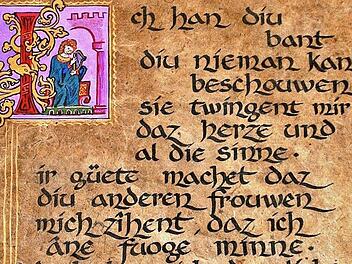 Ich han diu
bant
diu nieman kan
beschouwen
sie twingent mir
daz herze und
al die sinne·
ir güete machet daz
diu anderen frouwen
mich zîhent, daz ich
âne fuoge minne·